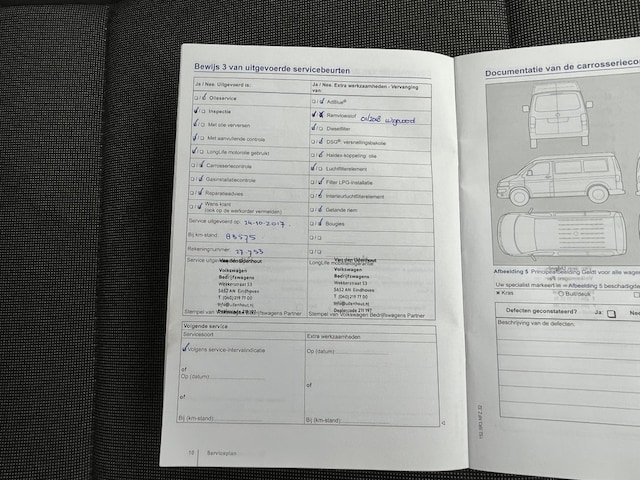 Bewijs 3 van uitgevoerde servicebeurten
Ja / Nee: Uitgevoerd is:
Olieservice
Inspectie
Met olie verversen
Met aanvullende controle
LongLife motorolie gebruikt
Carrosseriecontrole
Gasinstallatiecontrole
Reparatieadvies
Wens klant
(ook op de werkorder vermelden)
Service uitgevoerd op: 24-10-2017
Bij km-stand: 83575
Rekeningnummer: 27.753
Service
Van den Udenhout
Volkswagen
Bedrijfswagens
5652 AN Eindhoven
T. (040) 219 77 00
Stempel van Volkswagen Bedrijfswagens Partner
Ja / Nee: Extra werkzaamheden - Vervanging
van:
AdBlue®
Remvloeistof
Dieselfilter
DSG®: versnellingsbakolie
Haldex-koppeling: olie
Luchtfilterelement
Filter LPG-installatie
Interieurluchtfilterelement
Getande riem
Bougies
LongLife mobiliteitsgarantie
Van den Udenhout
Volkswagen
Bedrijfswagens
5652 AN Eindhoven
T. (040) 219 77 00
Dealercode 211 197
Stempel van Volkswagen Bedrijfswagens Partner
Volgende service
Servicesoort
Volgens service-intervalindicatie
of
Op (datum):
of
Bij (km-stand):
Extra werkzaamheden
Op (datum):
of
Bij (km-stand):
10 Serviceplan
Documentatie van de carrosserieco
Afbeelding 5 Principeafbeelding: Geldt voor alle wage
Uw specialist markeert in Afbeelding 5 beschadigde
× Kras
Buil/deuk
Defecten geconstateerd? Ja: Nee
Beschrijving van de defecten: